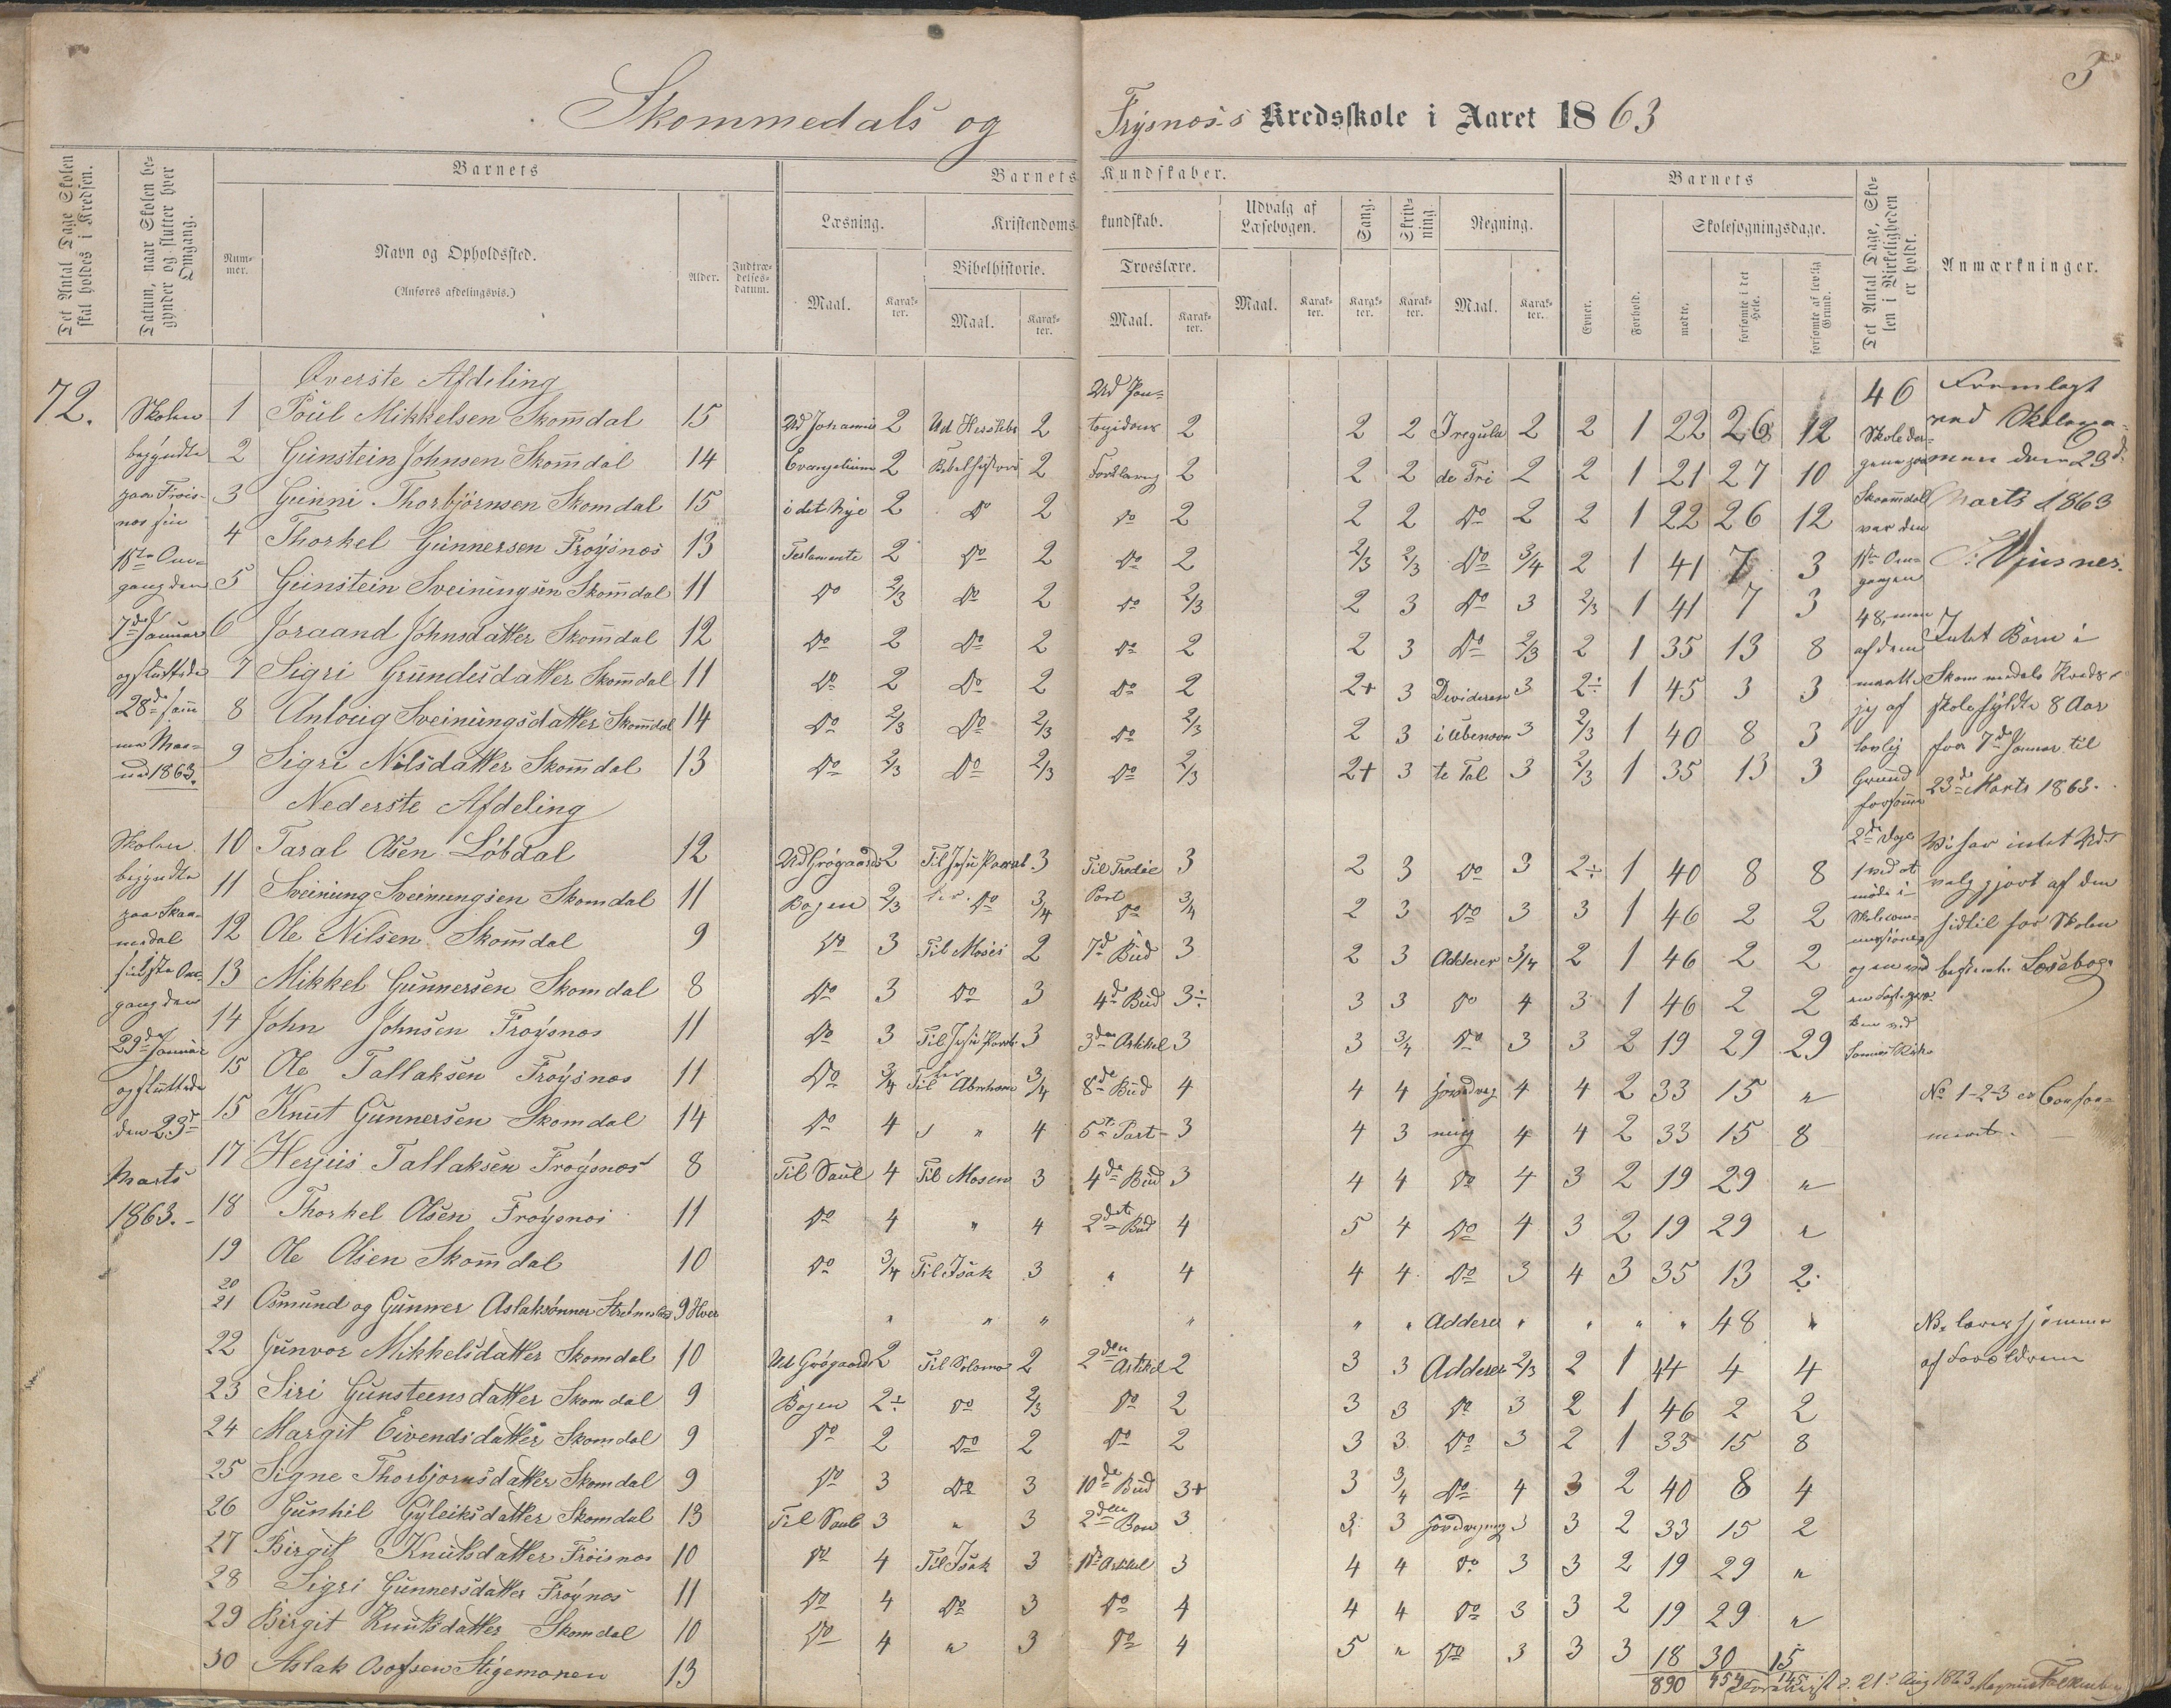 3
Skommedals og Frysnos's Kredsskole i Aaret 1863
Det Antal Dage Skolen skal holdes i Kredsen.
Datum, naar Skolen begynder og slutter hver Omgang.
Barnets
Nummer.
Navn og Opholdssted.
(Anføres afdelingsvis.)
Alder.
Indtrædelsesdatum.
Barnets Kundskaber.
Læsning.
Maal.
Karakter.
Kristendomskundskab.
Bibelhistorie.
Maal.
Karakter.
Troeslære.
Maal.
Karakter.
Udvalg af Læsebogen.
Maal.
Karakter.
Sang.
Karakter.
Skrivning.
Karakter.
Regning.
Maal.
Karakter.
Barnets
Evner.
Forhold.
Skolesøgningsdage.
mødte.
forsømte i det Hele.
forsømte af lovlig Grund.
Det Antal Dage, Skolen i Virkeligheden er holdt.
Anmærkninger.
72.
Skolen
begyndte
paa Frøis-
nos sin
1ste Om-
gang den
7de Januar
og sluttede
28de sam
me Maa-
ned 1863.
Skolen
begyndte
paa Skom-
medal
sidste Om-
gang den
29de Januar
og sluttede
den 23de
Marts
1863.-
Øverste Afdeling
1 Poul Mikkelsen Skom̄dal 15 Ud Johannes 2 Ud Herslebs 2 Ud Pon-
toppidans 2 2 2 Iregula 2 2 1 22 26 12
2 Gunstein Johnsen Skom̄dal 14 Evangelium 2 Bibelhistorie 2 Forklaring 2 2 2 de Tri 2 2 1 21 27 10
3 Gunni Thorbjörnsen Skomdal 15 i det Nye 2 Do 2 Do 2 2 2 Do 2 2 1 22 26 12
4 Thorkel Gunnersen Frøysnos 13 Testamente 2 Do 2 Do 2 2/3 2/3 Do 3/4 2 1 41 7 3
5 Gunstein Sveinungsen Skom̄dal 11 Do 2/3 Do 2 Do 2/3 2 3 Do 3 2/3 1 41 7 3
6 Joraand Johnsdatter Skom̄dal 12 Do 2 Do 2 Do 2 2 3 Do 2/3 2 1 35 13 8
7 Sigri Grundesdatter Skom̄dal 11 Do 2 Do 2 Do 2 2+ 3 Divideren 3 2÷ 1 45 3 3
8 Anloug Sveinungsdatter Skom̄dal 14 Do 2/3 Do 2/3 Do 2/3 2 3 i Ubenævn 3 2/3 1 40 8 3
9 Sigri Nilsdatter Skom̄dal 13 Do 2/3 Do 2/3 Do 2/3 2+ 3 te Tal 3 2/3 1 35 13 3
Nederste Afdeling
10 Taral Olsen Löbdal 12 Ud Grögaards 2 Til Jesu Parab 3 Til Tredie 3 2 3 Do 3 2÷ 1 40 8 8
11 Sveinung Sveinungsen Skomdal 11 Bogen 2/3 ler. Do 3/4 Part Do 3/4 2 3 Do 3 3 1 46 2 2
12 Ole Nilsen Skom̄dal 9 Do 3 Til Moses 2 7de Bud 3 2 3 Adderer 3/4 2 1 46 2 2
13 Mikkel Gunnersen Skomdal 8 Do 3 Do 3 4de Bud 3÷ 3 3 Do 4 3 1 46 2 2
14 John Johnsen Frøysnos 11 Do 3 Til Jesu Parab 3 3den Artikel 3 3 3/4 Do 3 3 2 19 29 29
15 Ole Tallaksen Frøysnos 11 Do 3/4 Til Abraham 3/4 8de Bud 4 4 4 Hovedreg 4 4 2 33 15 "
15 Knut Gunnersen Skomdal 14 Do 4 " 4 5te Part 3 4 3 ning 4 4 2 33 15 8
17 Herjus Tallaksen Frøysnos 8 Til Saul 4 Til Mosen 3 4de Bud 3 4 4 Do 4 3 2 19 29 "
18 Thorkel Olsen Frøysnos 11 Do 4 " 4 2det Bud 4 5 4 Do 4 3 2 19 29 "
19 Ole Olsen Skom̄dal 10 Do 3/4 Til Isak 3 " 4 4 4 Do 3 4 3 35 13 2
20
21 Osmund og Gunner Aslaksønner 9 Hver " " " " " " Addere " " " " 48 "
22 Gunvor Mikkelsdatter Skomdal 10 Ud Grøgaards 2 Til Solomo 2 2den Artikel 2 3 3 Adderer 2/3 2 1 44 4 4
23 Siri Gunsteensdatter Skomdal 9 Bogen 2÷ Do 2/3 Do 2 3 3 Do 3 2 1 46 2 2
24 Margit Eivendsdatter Skomdal 9 Do 2 Do 2 Do 2 3 3 Do 3 2 1 33 15 8
25 Signe Thorbjornsdatter Skomdal 9 Do 3 Do 3 10de Bud 3+ 3 3/4 Do 4 3 2 40 8 4
26 Gunhil Gyleiksdatter Skomdal 13 Til Saul 3 " 3 2den Bøn 3 3 3 Hovdregning 3 3 2 33 15 2
27 Birgit Knutsdatter Frøisnos 10 Do 4 Til Isak 3 1ste Artikel 3 4 4 Do 3 3 2 19 29 "
28 Sigri Gunnersdatter Frøynos 11 Do 4 Do 3 Do 4 4 4 Do 3 3 2 19 29 "
29 Birgit Knutsdatter Skomdal 10 Do 4 " 3 Do 4 5 " Do 3 3 3 18 30 15
30 Aslak Osofsen Stigemonen 13
890 454 145
46
Skoleda-
gene paa
Skommedal
var den
1ste Om-
gangen
48, men
af dem
maatte
jeg af
lovlig
Grund
forsømme
2de Dage
1 ved at
møde i
Skolecom-
missionen
og en ved
Fremlagt
ved Skolexa-
men den 23de
Marts 1863
Intet Børn i
Skommedals Kreds-
skole fyldte 8 Aar
fra 7de Januar til
23de Marts 1863.
Vi har intet Ud-
valg gjort af den
hidtil for Skolen
bestemte Læsebog
No 1-2-3 er Confir-
meret.
NB. læres hjemme
af Forældrene
21de Aug 1863